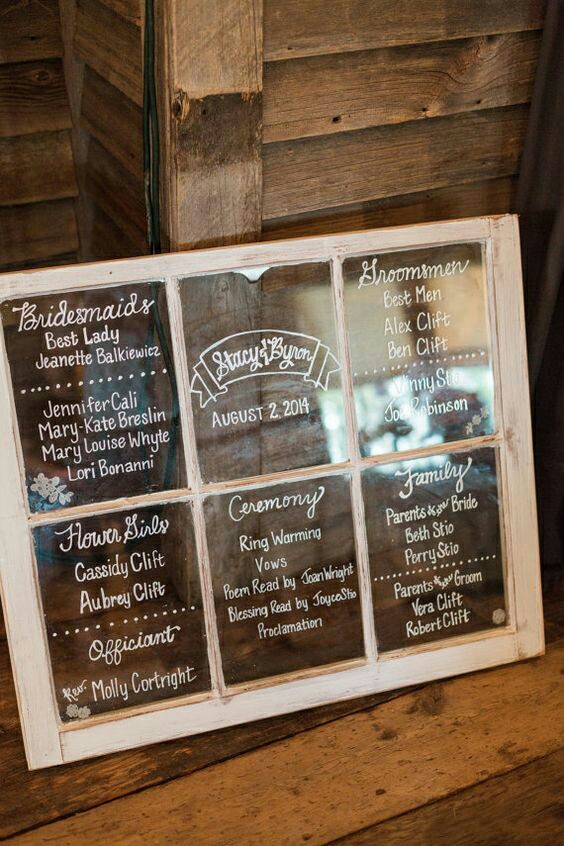 Bridesmaids
Best Lady
Jeanette Balkiewicz
Jennifer Cali
Mary-Kate Breslin
Mary Louise Whyte
Lori Bonanni
Stacy & Byron
AUGUST 2, 2014
Groomsmen
Best Men
Alex Clift
Ben Clift
Vinny Stio
Joe Robinson
Flower Girls
Cassidy Clift
Aubrey Clift
Officiant
Rev. Molly Cortright
Ceremony
Ring Warming
Vows
Poem Read by Joan Wright
Blessing Read by Joyce Stio
Proclamation
Family
Parents of the Bride
Beth Stio
Perry Stio
Parents of the Groom
Vera Clift
Robert Clift